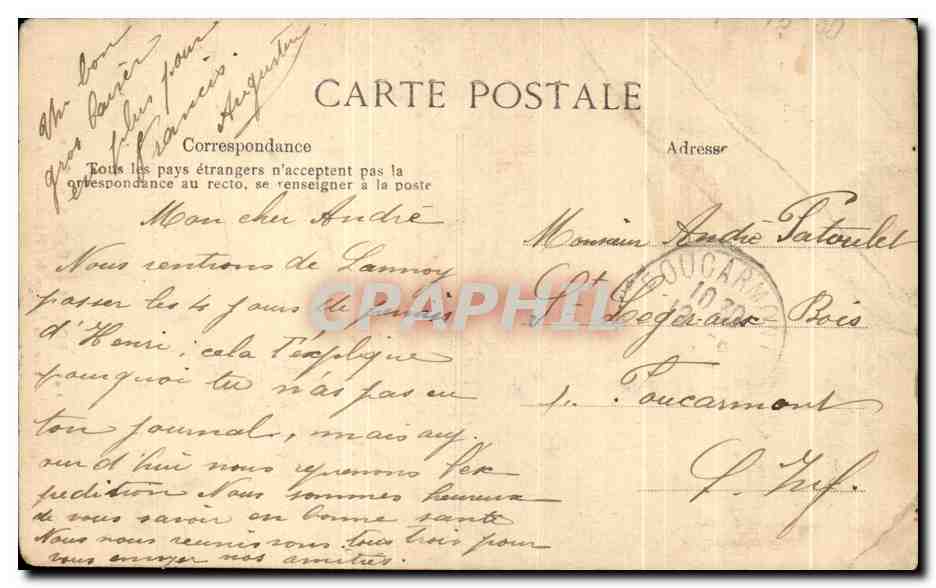 Un bon
gros baiser
en plus pour
Francis.
Augustin
CARTE POSTALE
Correspondance
Tous les pays étrangers n'acceptent pas la
correspondance au recto, se renseigner à la poste
Adresse
Mon cher André
Nous rentrons de Lannoy
passer les 4 jours de
d'Henri, cela t'explique
pourquoi tu n'as pas eu
ton journal, mais auj.
our d'hui nous reprenons l'ex
pedition Nous sommes heureux
de vous savoir en bonne santé
Nous nous reunissons tous trois pour
vous envoyer nos amitiés.
Monsieur André Patoulet
St Léger aux Bois
p. Foucarmont
S. Inf.
FOUCARM
10
CPAPHIL